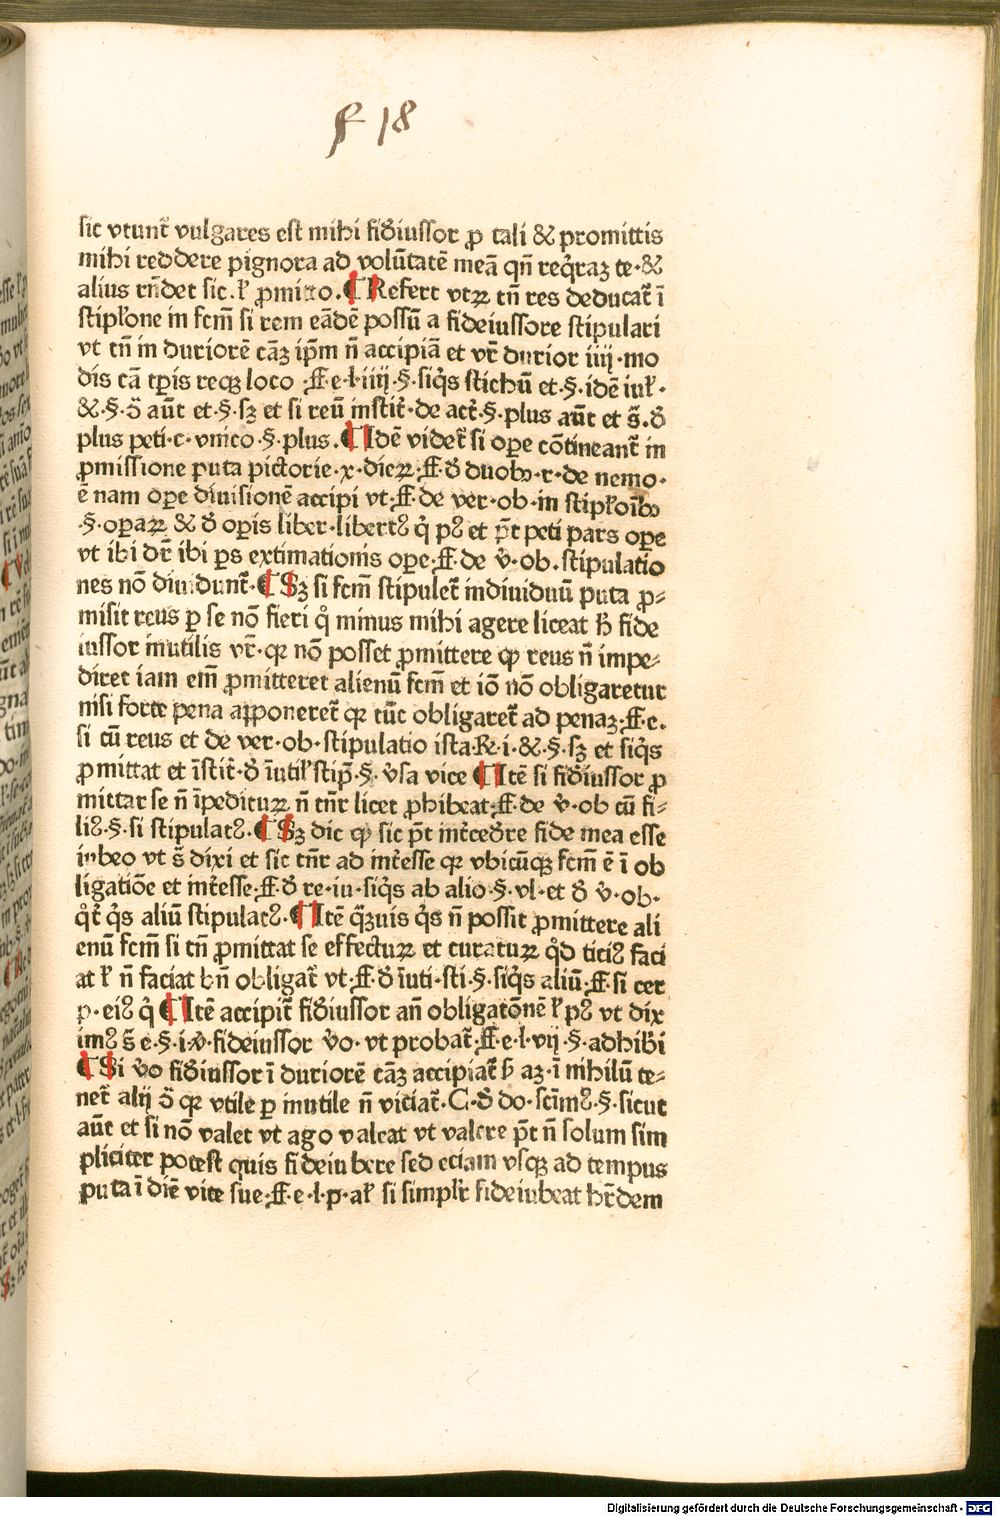 ſſ 18
sic vtunt̃ vulgares est mihi fiðiussor ꝓ tali & promittis
mihi reddere pignora ad volũtatẽ meã qñ reqͥraꝫ te·&
alius rñdet sic. ł ꝓmitto. ¶ Refert vtꝝ tñ res deducat̃ ĩ
stipłone in fcm̃ si rem eãdẽ possũ a fideiussore stipulari
vt tñ in duriorẽ cãꝫ ipm̃ ñ accipiã et vr̃ durior iiij·mo
dis cã tꝑis reqꝫ loco ·ff·e·l·iiij·§·siqͥs stichũ et·§·idẽ iuł·
&·§·õ aũt et·§·sꝫ et si reũ instit̃·de act̃·§·plus aũt et s̃·ð
plus peti·c·vnico·§·plus. ¶ Idẽ videt̃ si oꝑe cõtineant̃ in
ꝓmissione puta pictorie·x·dieꝝ·ff·ð duobꝰ·r·de nemo·
ẽ nam oꝑe diuisionẽ accipi vt·ff·de ver·ob·in stipłoĩbꝰ
·§·oꝑaꝝ & ð oꝑis liber·libertꝰ qͥ pꝰ et p̃t peti pars oꝑe
vt ibi dr̃ ibi ꝑs extimationis oꝑe·ff·de v̊·ob·stipulatio
nes nõ diuidunt̃· ¶ Sꝫ si fcm̃ stipulet̃ indiuiduũ puta ꝓ-
misit reus ꝑ se nõ fieri qͦ minus mihi agere liceat ħ fide
iussor inutilis vr̃·qꝛ nõ posset ꝓmittere ꝙ reus ñ impe-
diret iam em̃ ꝓmitteret alienũ fcm̃ et iõ nõ obligaretur
nisi forte pena apponeret̃ qꝛ tũc obligaret̃ ad penaꝫ·ff·e.
si cũ reus et de ver·ob·stipulatio ista·R·i·&·§·sꝫ et siqͥs
ꝓmittat et ĩstit̃·ð ĩutił stip̃·§·v̊sa vice ¶ Itẽ si fiðiussor ꝓ
mittat se ñ ĩpedituꝝ ñ tñr licet ꝓhibeat·ff·de v̊·ob cũ fi-
liꝰ·§·si stipulatꝰ. ¶ Sꝫ dic ꝙ sic p̃t int̃ceðre fide mea esse
iubeo vt s̃ dixi et sic tñr ad int̃esse qꝛ vbicũqꝫ fcm̃ ẽ ĩ ob
ligatiõe et int̃esse·ff·ð re·iu·siqͥs ab alio·§·vl·et ð v̊·ob·
qͦt̃ qͥs aliũ stipulatꝰ. ¶ Itẽ qꝫuis qͥs ñ possit ꝓmittere ali
enũ fcm̃ si tñ ꝓmittat se effectuꝝ et curatuꝝ qͦd titiꝰ faci
at ł ñ faciat bñ obligat̃ vt·ff·ð ĩuti·sti·§·siqͥs aliũ·ff·si cer
p·eiꝰ qͥ ¶ Itẽ accipit̃ fiðiussor añ obligatõnẽ ł pꝰ vt dix
imꝰ s̃ e·§·i·v̊·fideiussor v̊o·vt probat̃·ff·e·l·vij·§·adhiƀi
¶ Si v̊o fiðiussor ĩ duriorẽ cãꝫ accipiat̃ ħ aꝫ·ĩ nihilũ te-
net̃ alij õ qꝛ vtile ꝑ inutile ñ viciat̃·C·ð do·scĩmꝰ·§·sicut
aũt et si nõ valet vt ago valeat vt valere p̃t ñ solum sim
pliciter potest quis fideiubere sed eciam vsqꝫ ad tempus
puta ĩ diẽ vite sue·ff·e·l·p·ał si simplr̃ fideiubeat hr̃dem
Digitalisierung gefördert durch die Deutsche Forschungsgemeinschaft - DFG